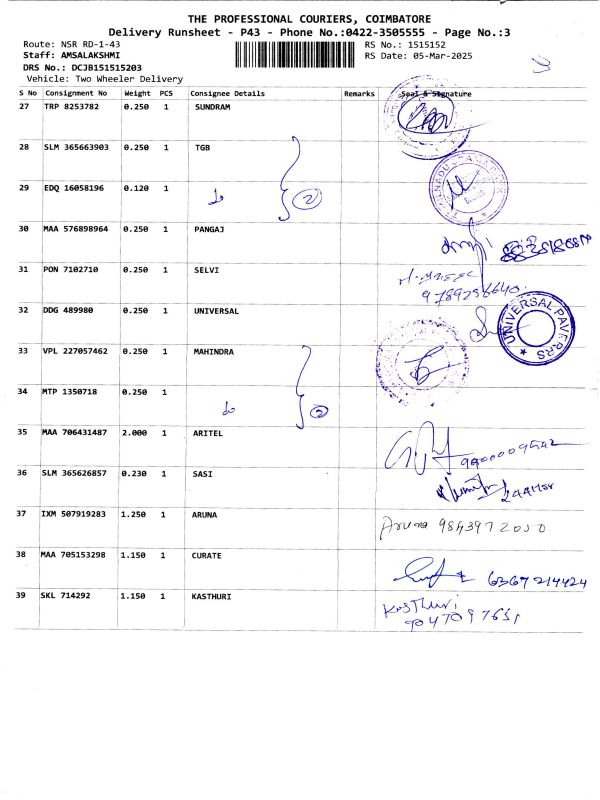 THE PROFESSIONAL COURIERS, COIMBATORE
Delivery Runsheet - P43 - Phone No.:0422-3505555 - Page No.:3
Route: NSR RD-1-43 RS No.: 1515152
Staff: AMSALAKSHMI RS Date: 05-Mar-2025
DRS No.: DCJB151515203
Vehicle: Two Wheeler Delivery
S No Consignment No Weight PCS Consignee Details Remarks Seal & Signature
27 TRP 8253782 0.250 1 SUNDRAM
28 SLM 365663903 0.250 1 TGB
29 EDQ 16058196 0.120 1 do 2
30 MAA 576898964 0.250 1 PANGAJ
31 PON 7102710 0.250 1 SELVI
9789256640
32 DDG 489980 0.250 1 UNIVERSAL UNIVERSAL PAVERRS
33 VPL 227057462 0.250 1 MAHINDRA
34 MTP 1350718 0.250 1 do 2
35 MAA 706431487 2.000 1 ARITEL
36 SLM 365626857 0.230 1 SASI
37 IXM 507919283 1.250 1 ARUNA Aruna
38 MAA 705153298 1.150 1 CURATE 6367214424
39 SKL 714292 1.150 1 KASTHURI Kasthuri
9047097651